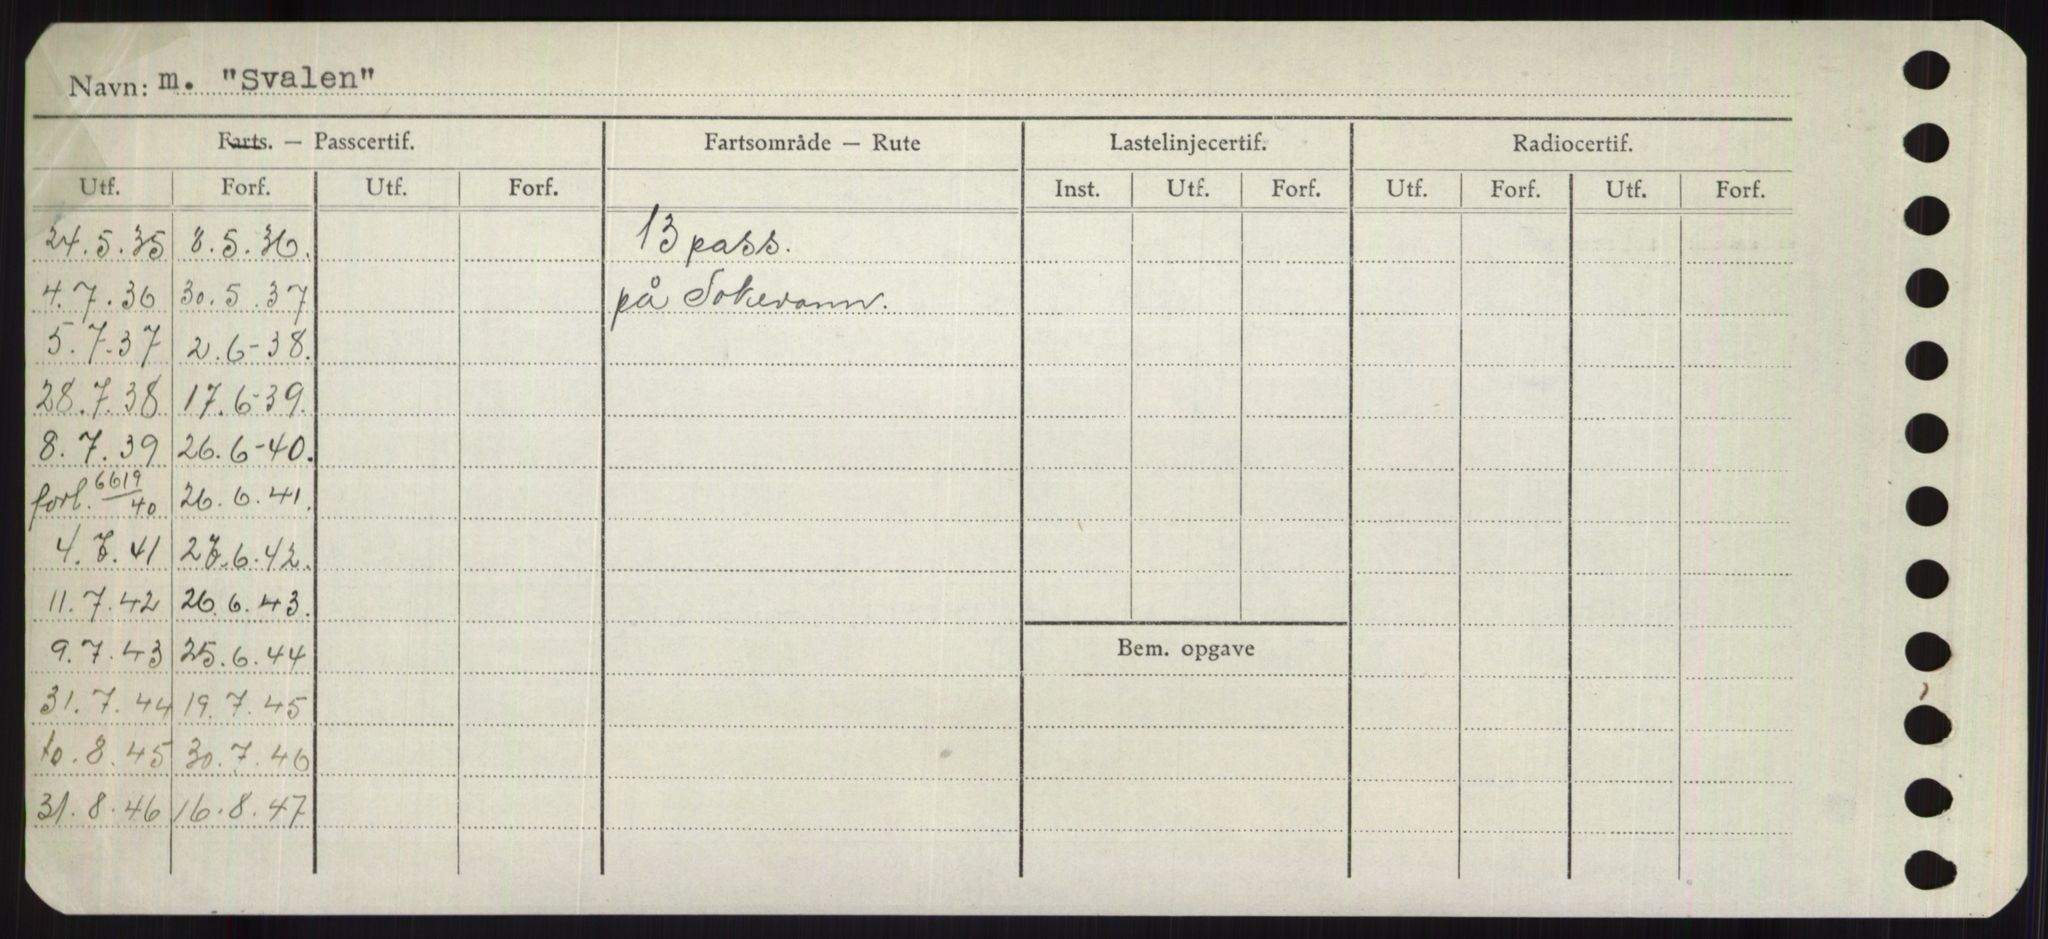 Navn: m. "Svalen"
Farts. — Passcertif. Fartsområde — Rute Lastelinjecertif. Radiocertif.
Utf. Forf. Utf. Forf. Inst. Utf. Forf. Utf. Forf. Utf. Forf.
24.5.35 8.5.36. 13 pass.
4.7.36 30.5.37 på
5.7.37 2.6-38.
28.7.38 17.6-39.
8.7.39 26.6-40.
forl. 6619/40 26.6.41.
4.7.41 27.6.42.
11.7.42 26.6.43.
Bem. opgave
9.7.43 25.6.44
31.7.44 19.7.45
10.8.45 30.7.46
31.8.46 16.8.47